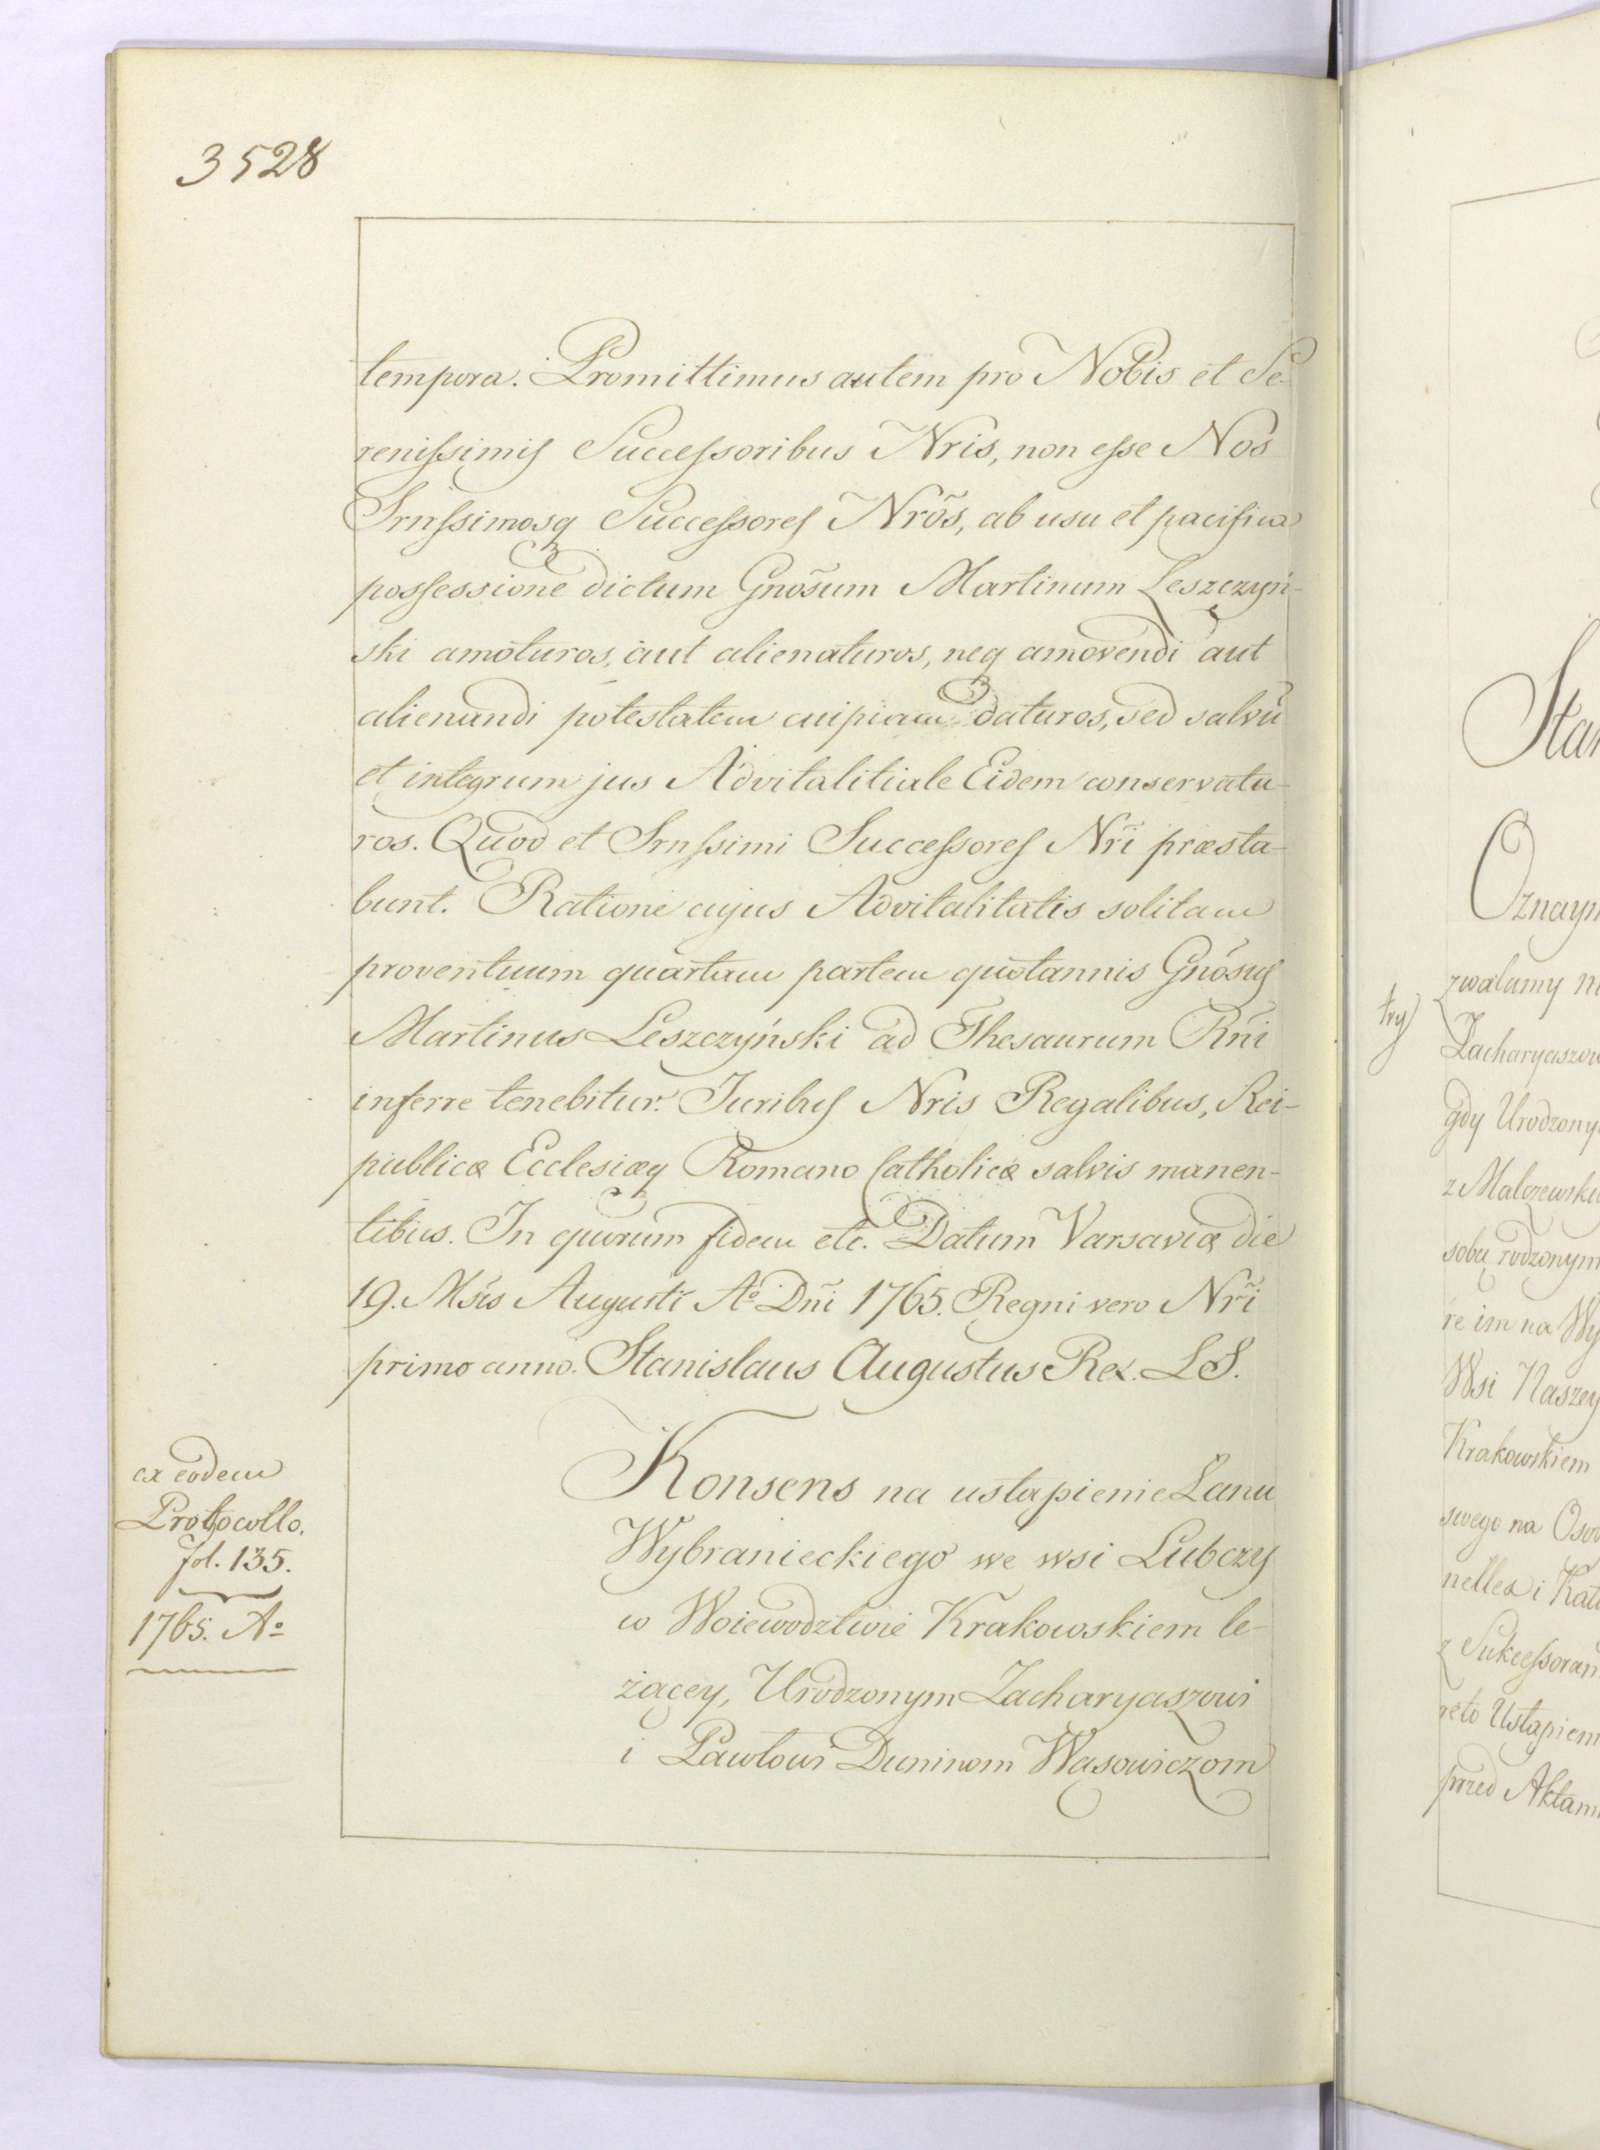 3528
tempora. Promittimus autem pro Nobis et Se-
renissimis Successoribus Nris, non esse Nos
Srnssimosq Successores Nrõs, ab usu et pacifica
possessione dictum Gnõsum Martinum Leszczyń-
ski amoturos, aut alienaturos, neq amovendi aut
alienandi potestatem cuipiam daturos, sed salvũ
et integrum jus Advitalitiale Eidem conservatu-
ros. Quod et Srnssimi Successores Nr̃i præsta-
bunt. Ratione cujus Advitalitatis solitam
proventuum quartam partem quotannis Gnõsus
Martinus Leszczyński ad Thesaurum Rñi
inferre tenebitur. Juribus Nris Regalibus, Rei-
publicæ Ecclesiæq Romano Catholicæ salvis manen-
tibus. In quorum fidem etc. Datum Varsaviæ die
19. Msis Augusti Aº Dñi 1765. Regni vero Nr̃i
primo anno. Stanislaus Augustus Rex. LS.
ex eodem
Protocollo.
fol. 135.
1765. Aº
Konsens na ustąpienie Łanu
Wybranieckiego we wsi Lubczy
w Woiewodztwie Krakowskiem le-
żącey, Urodzonym Zacharyaszowi
i Pawłowi Duninom Wąsowiczom
Star
Oznaym
zwalamy
try
Zacharyaszow
gdy Urodzony
z Malczewski
sobą rodzonym
re im na Wy
Wsi Naszey
Krakowskiem
swego na Oso
nelles i Kat
z Sukcessoram
Ustąpieni
przed Aktami